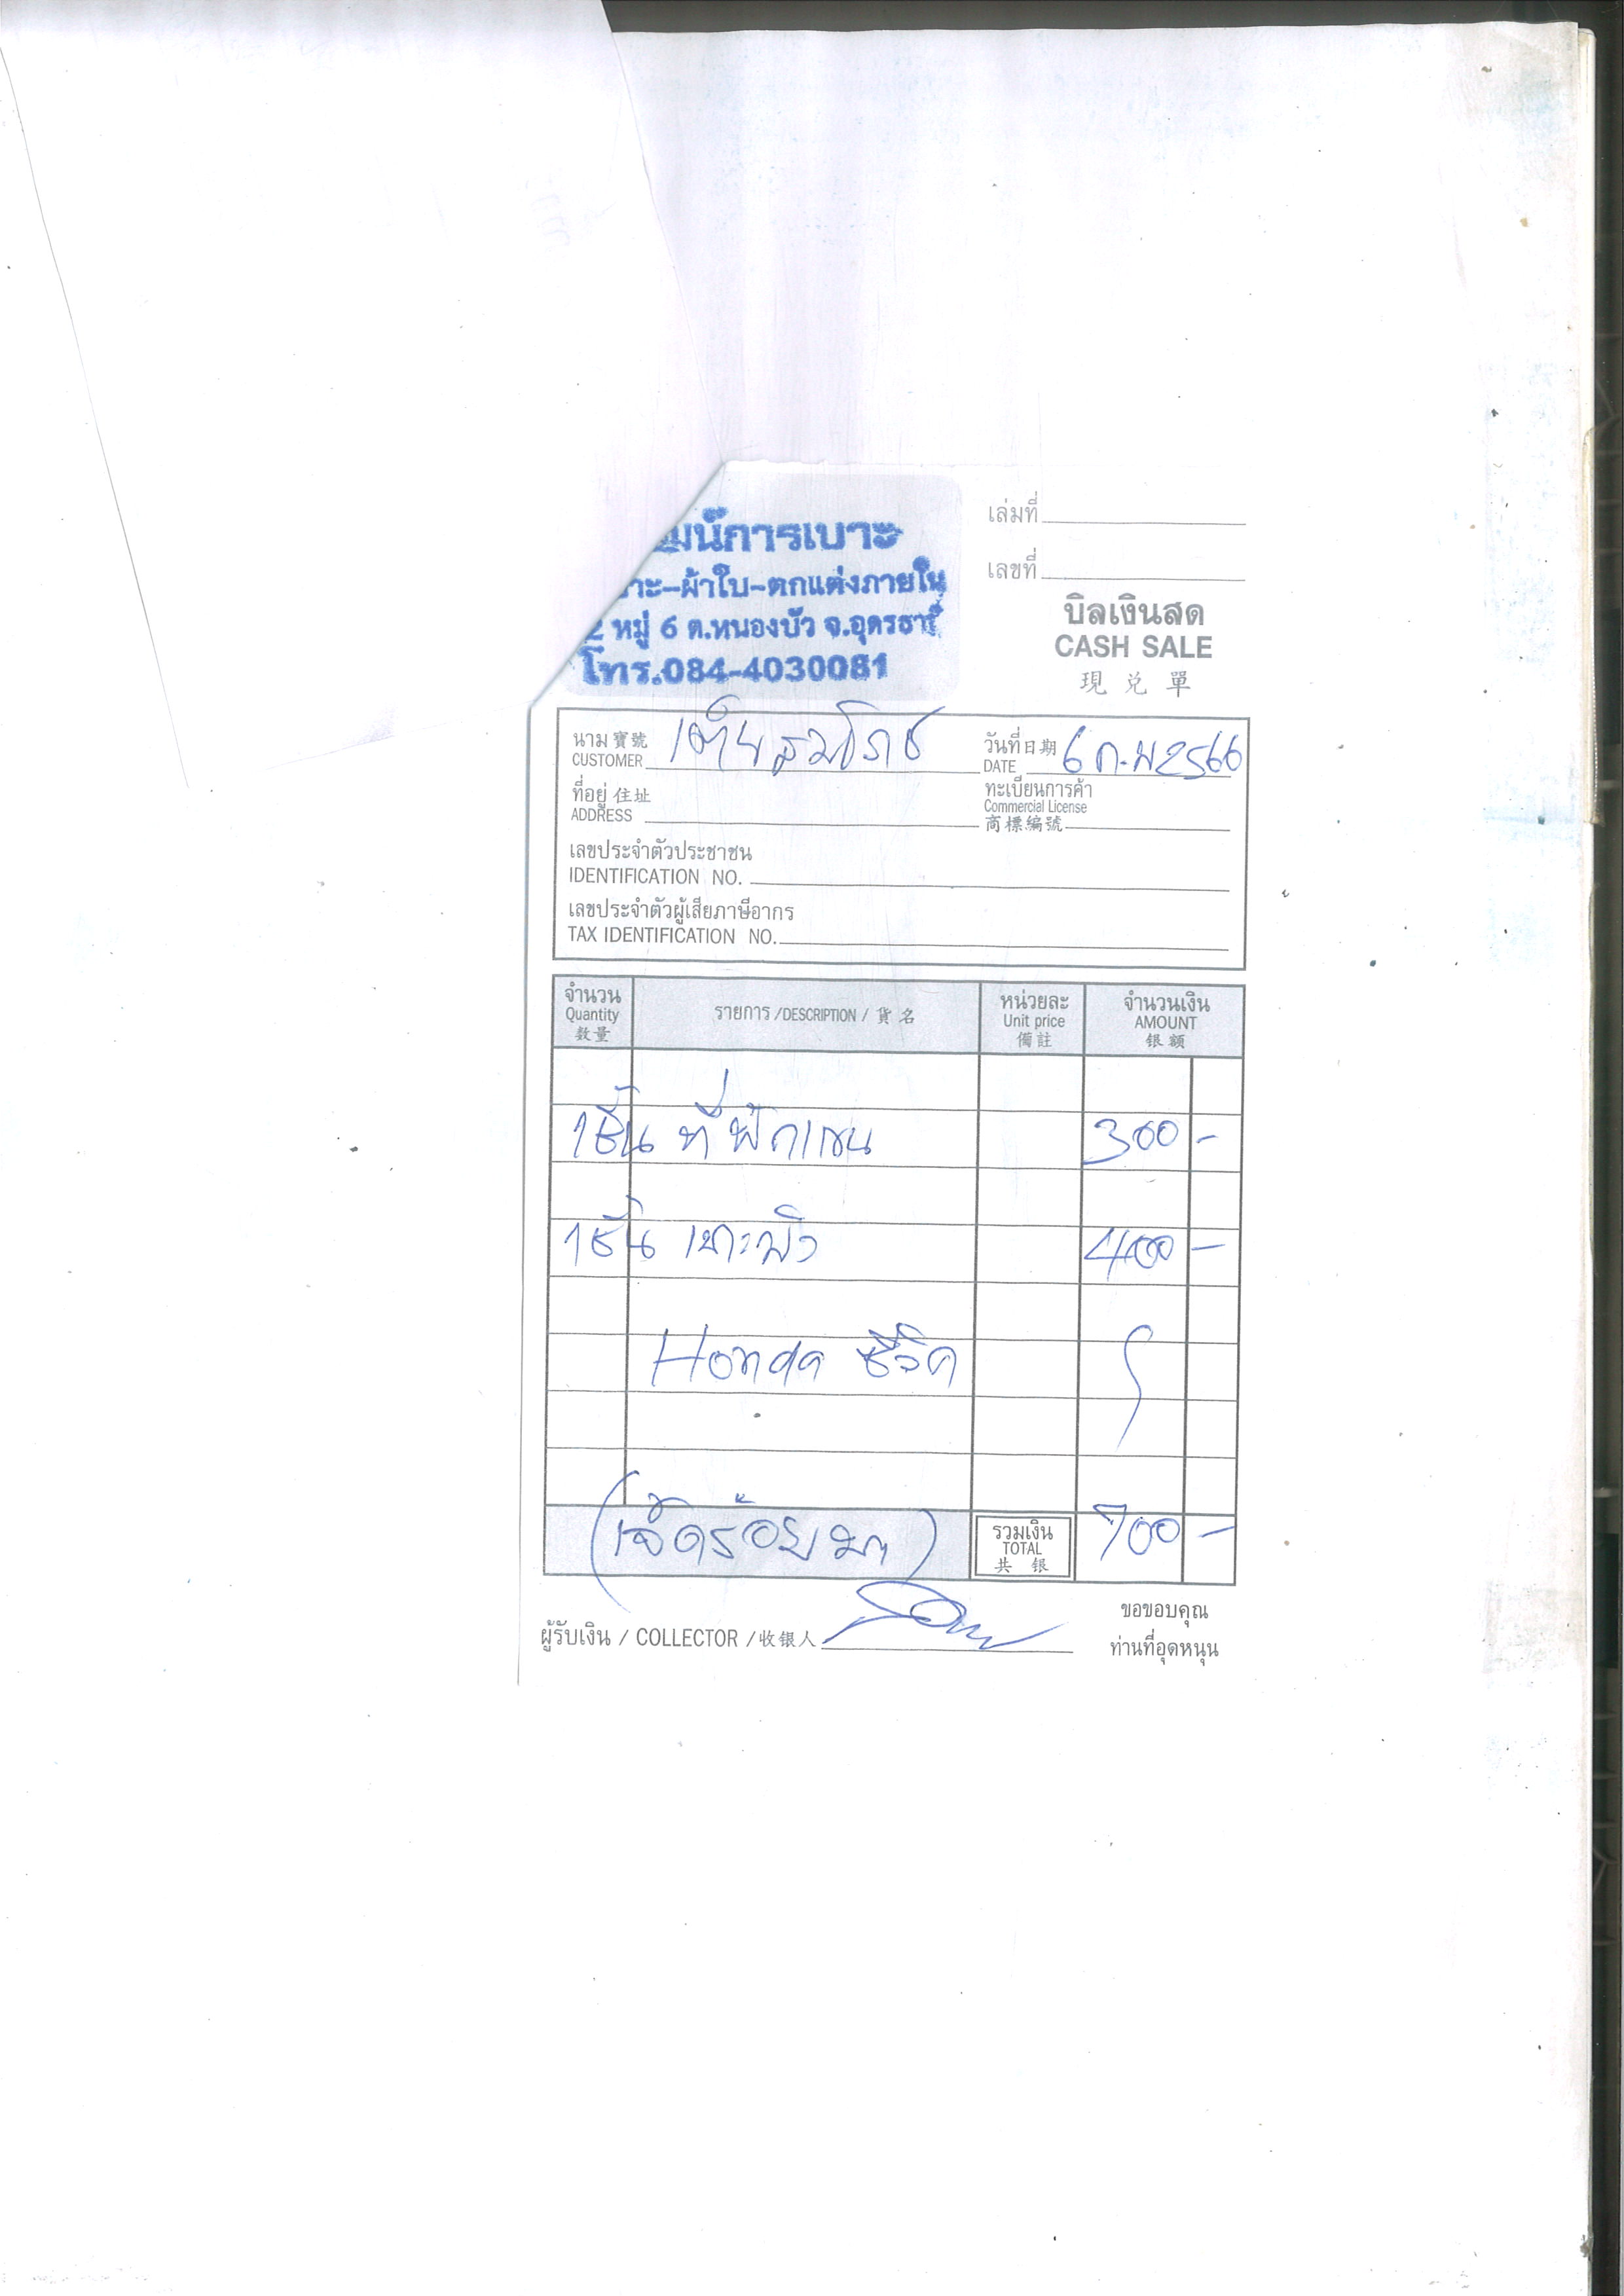 มน์การเบาะ
าะ-ผ้าใบ-ตกแต่งภายใน
2 หมู่ 6 ต.หนองบัว จ.อุดรธานี
โทร.084-4030081
เล่มที่
เลขที่
บิลเงินสด
CASH SALE
現兌單
นาม 寶號
CUSTOMER
วันที่ 日期 6 ก.พ 2566
DATE
ที่อยู่ 住址
ADDRESS
ทะเบียนการค้า
Commercial License
商標編號
เลขประจำตัวประชาชน
IDENTIFICATION NO.
เลขประจำตัวผู้เสียภาษีอากร
TAX IDENTIFICATION NO.
จำนวน รายการ /DESCRIPTION / 貨名 หน่วยละ จำนวนเงิน
Quantity Unit price AMOUNT
数量 備註 银额
1ชิ้น ที่พักแขน 300 -
1ชิ้น เบาะพิง 400 -
Honda ซีวิค
(เจ็ดร้อยบาท) รวมเงิน 700 -
TOTAL
共银
ผู้รับเงิน / COLLECTOR / 收银人
ขอขอบคุณ
ท่านที่อุดหนุน